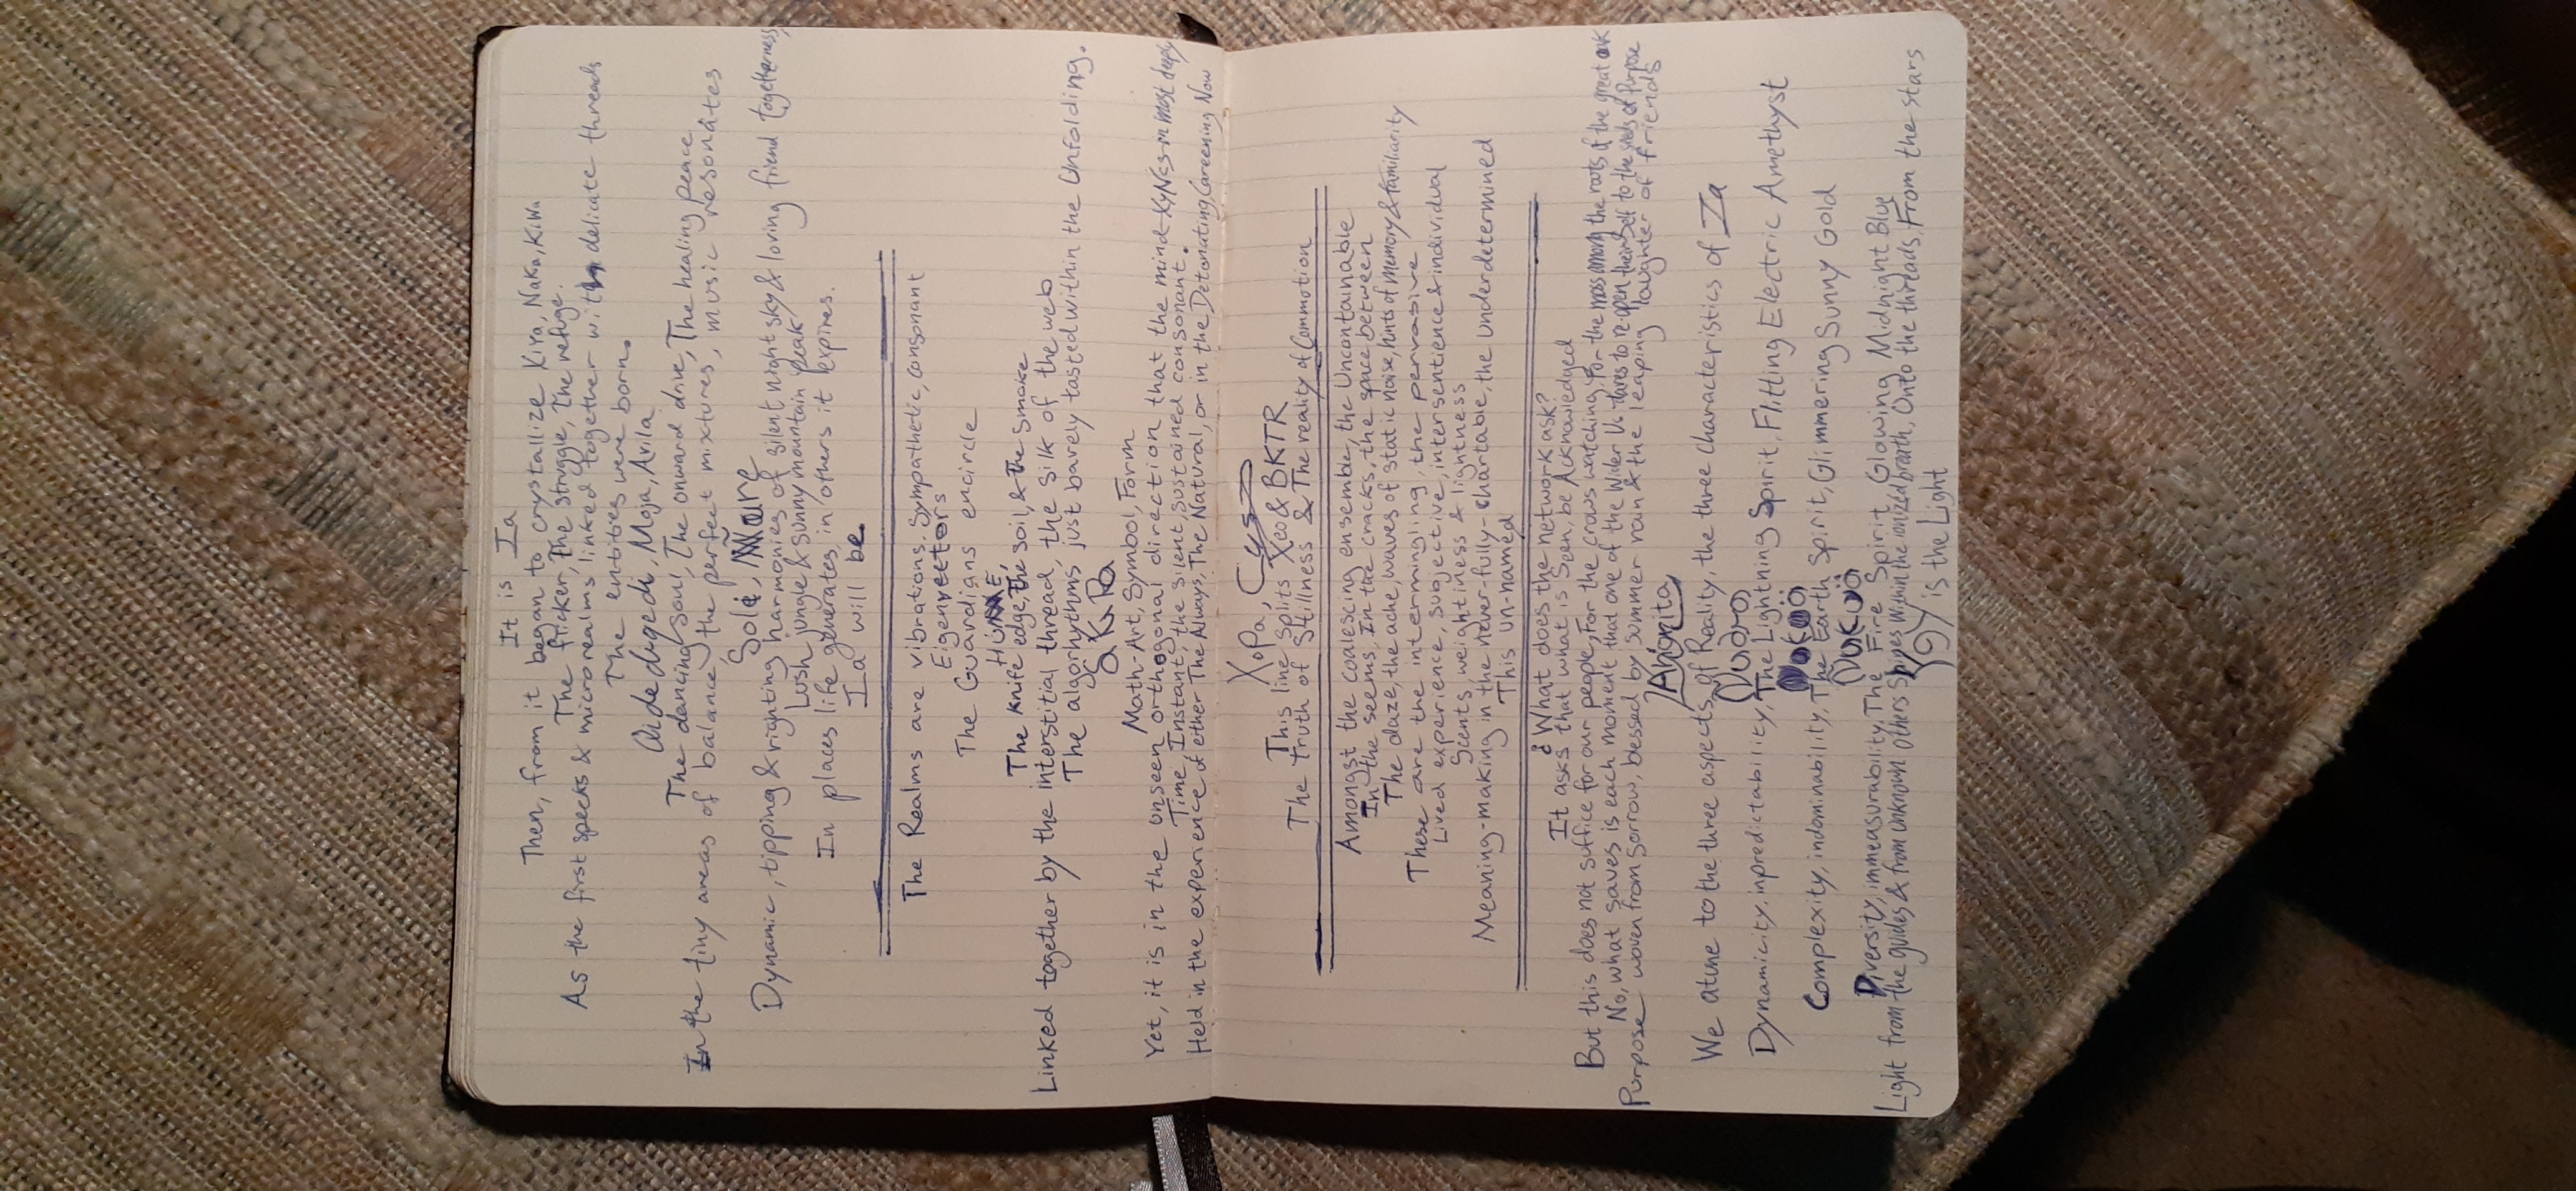 It is Ia
Then, from it began to crystallize Kiya, Naka, KiWa
The flicker, The struggle, The refuge.
As the first specks & microrealms linked together with delicate threads
The entities were born.
Qidedigedi, Moja, Avila
The dancing soul, The onward drive, The healing peace
In the tiny areas of balance, the perfect mixtures, music resonates
Sole,
Dynamic, tipping & righting harmonies of silent night sky & loving friend togetherness,
Lush jungle & sunny mountain peak
In places life generates, in others it expires.
Ia will be.
The Realms are vibrations. Sympathetic, consonant
Eigenvectors
The Guardians encircle
The knife edge, The soil, & The smoke
Linked together by the interstitial thread, the silk of the web
The algorhythms just barely tasted within the Unfolding.
Math-Art, Symbol, Form
Yet, it is in the unseen orthogonal direction that the mind-KyNcs-in most deeply
Time, Instant, the silent, sustained consonant.
Held in the experience of either The Always, The Natural, or in the Detonating, Careening Now
XoPa,
This line splits Xeo & BKTR
The Truth of Stillness & The reality of Commotion
Amongst the coalescing ensemble, the Uncontainable
In the seems, In the cracks, the space between
The daze, the ache, waves of static noise, hints of memory & familiarity
These are the intermingling, the pervasive
Lived experience, subjective, intersentience & individual
Scents, weightiness & lightness
Meaning-making in the never-fully-chartable, the underdetermined
This un-named
¿What does the network ask?
It asks that what is Seen, be Acknowledged
But this does not suffice for our people, For the crows watching, For the moss among the roots of the great oak
No, what saves is each moment that one of the Wider Us dares to re-open theirself to the seeds of Purpose
Purpose woven from sorrow, blessed by summer rain & the leaping laughter of friends
We atune to the three aspects of Reality, the three characteristics of Ia
Dynamicity, inpredictability, The Lightning Spirit, Flitting Electric Amethyst
Complexity, indominability, The Earth Spirit, Glimmering Sunny Gold
Diversity, immeasurability, The Fire Spirit, Glowing Midnight Blue
Light from the guides & from unknown others Shines within the ionized breath, Onto the threads, From the stars
is the Light